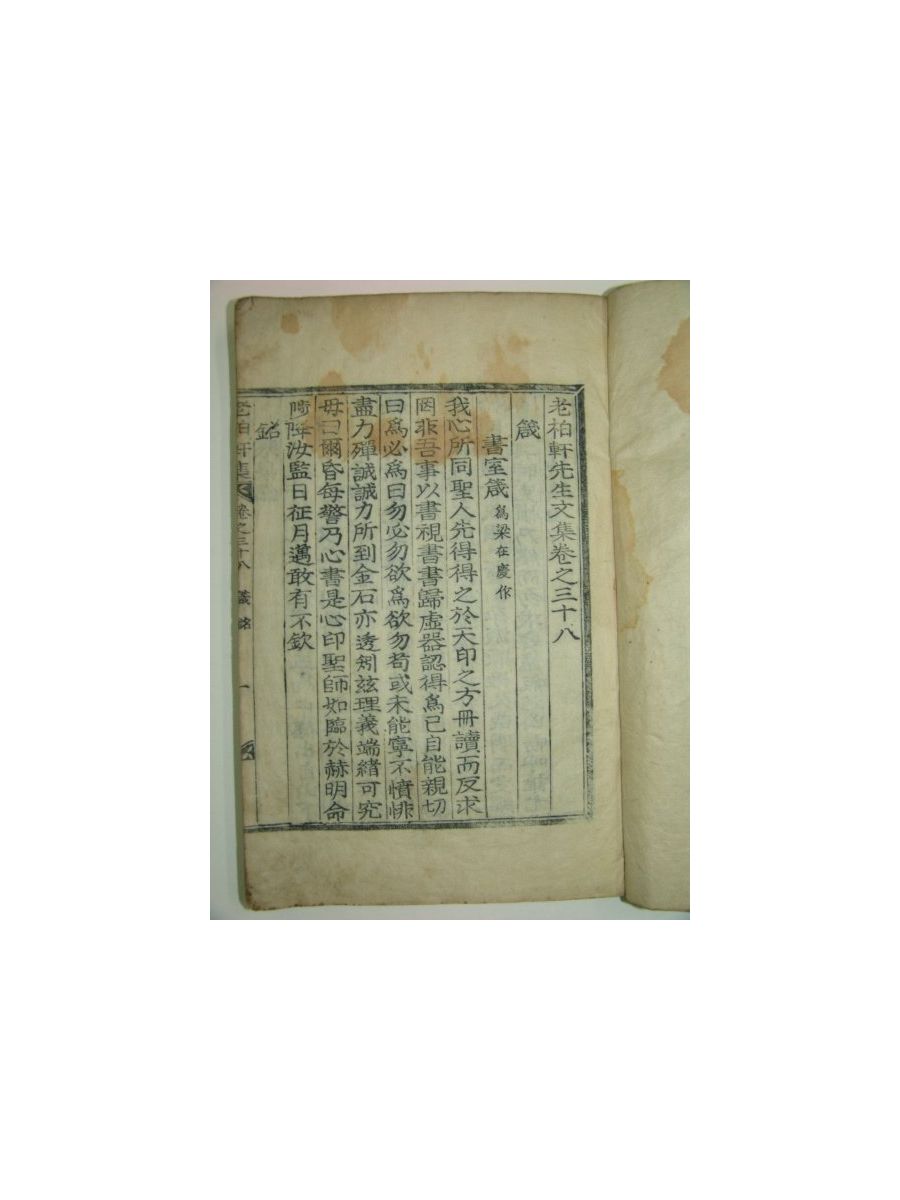 老柏軒先生文集卷之三十八
箴
書室箴 爲梁在慶作
我心所同聖人先得得之於天印之方冊讀而反求
罔非吾事以書視書書歸虛器認得爲己自能親切
曰爲必爲曰勿必勿欲爲欲勿苟或未能寧不憤悱
盡力殫誠誠力所到金石亦透矧玆理義端緖可究
毋曰爾昏每警乃心書是心印聖師如臨於赫明命
陟降汝監日征月邁敢有不欽
銘
老柏軒集 卷之三十八 箴 銘 一